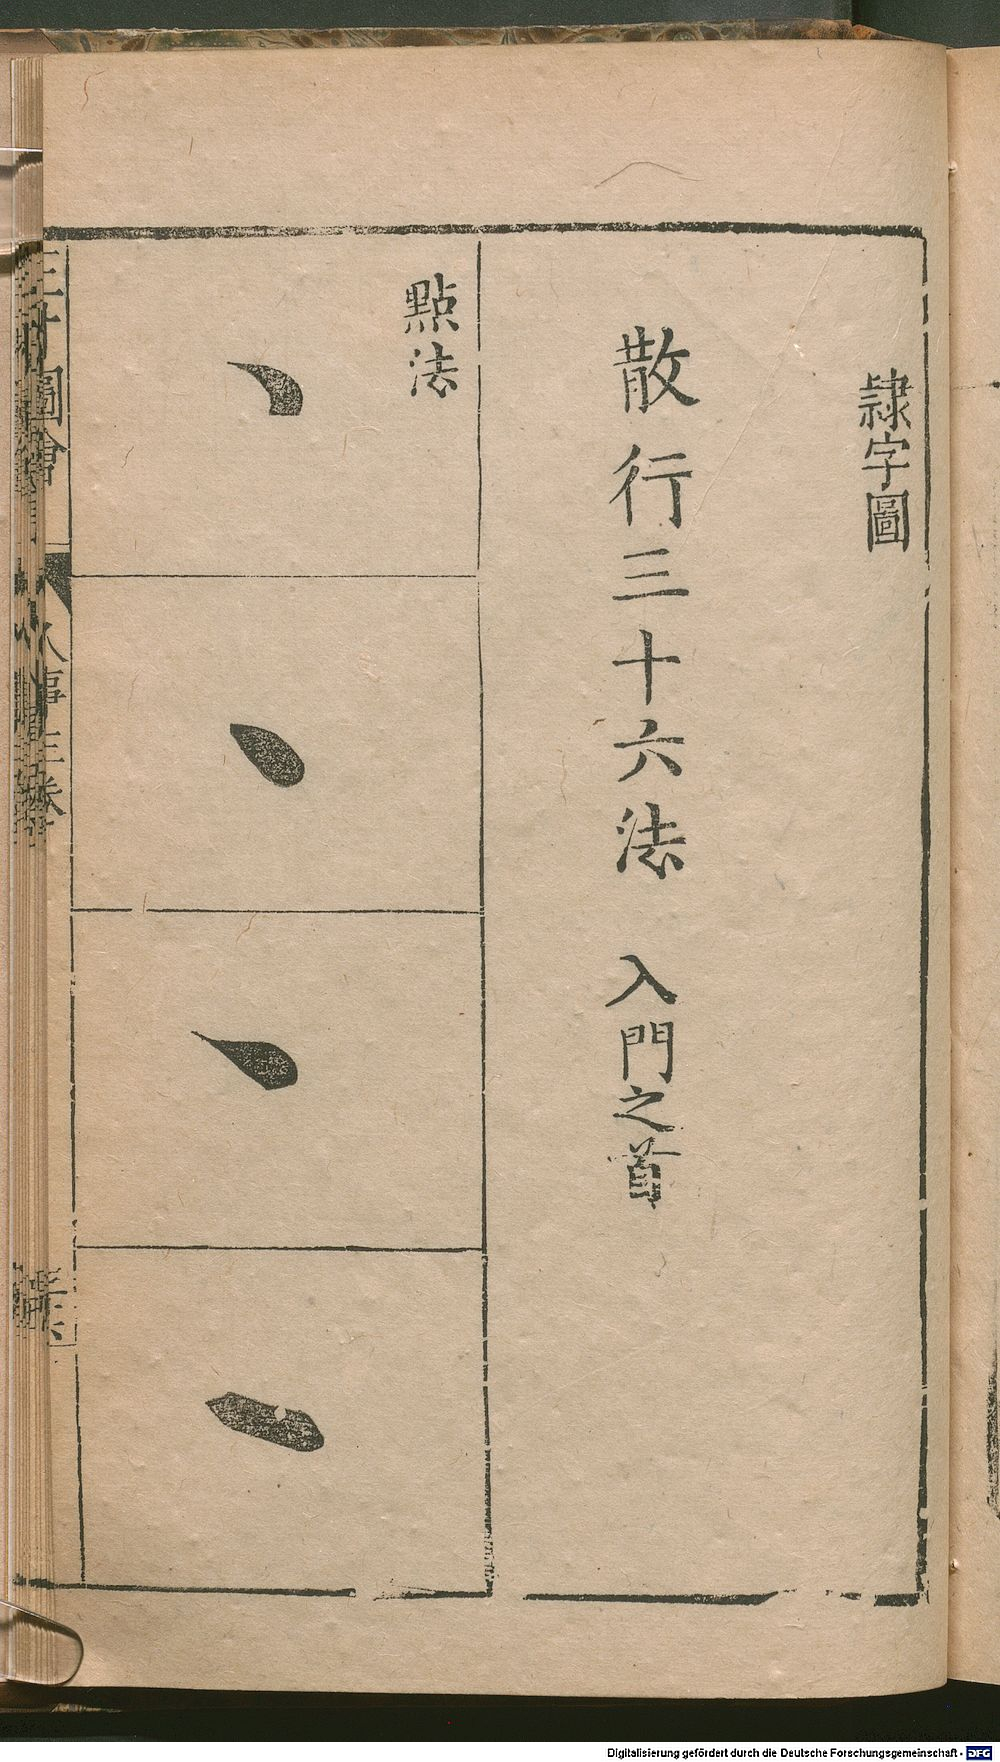 隸字圖
散行三十六法 入門之首
點法
三才圖會
人事三卷
Digitalisierung gefördert durch die Deutsche Forschungsgemeinschaft - DFG